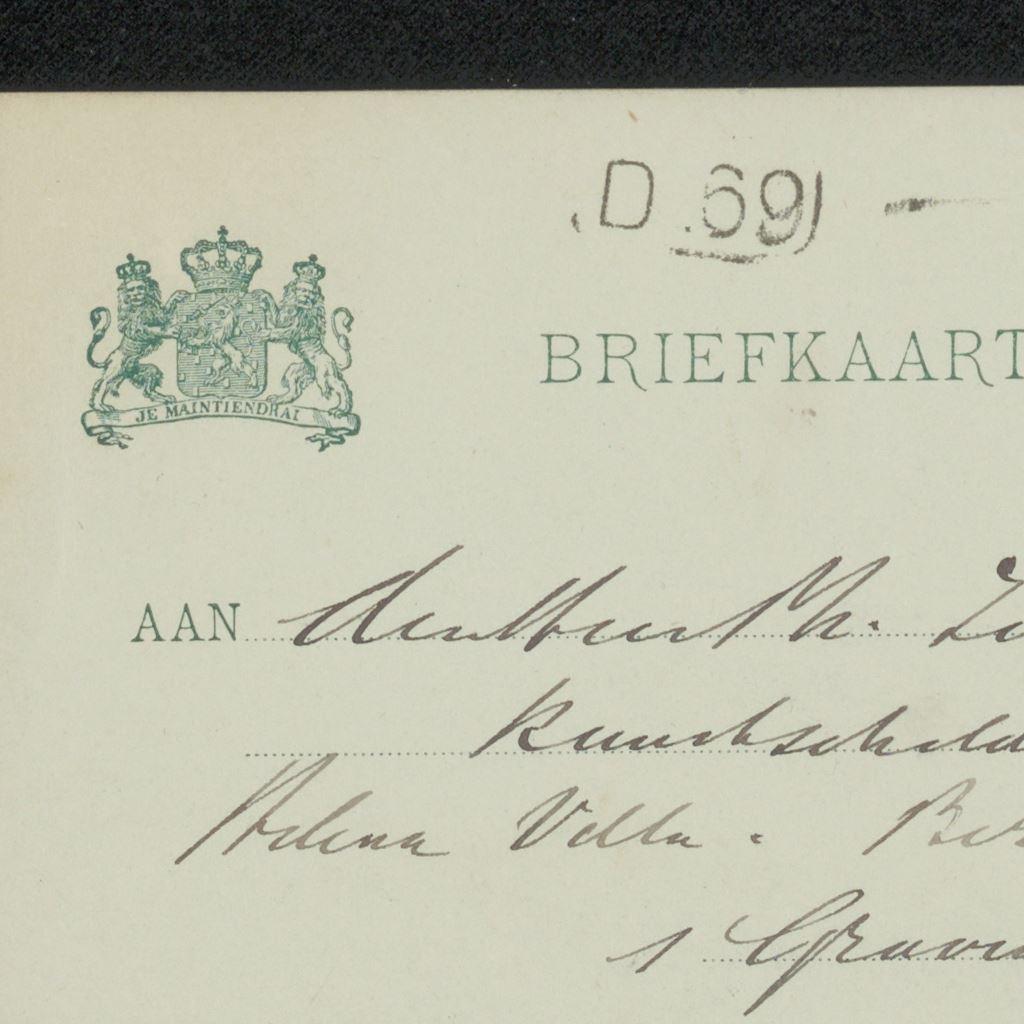 D. 69)
JE MAINTIENDRAI
BRIEFKAART
AAN den Heer Ph. Zi
kunstschild
Helena Villa. Be
s Graven